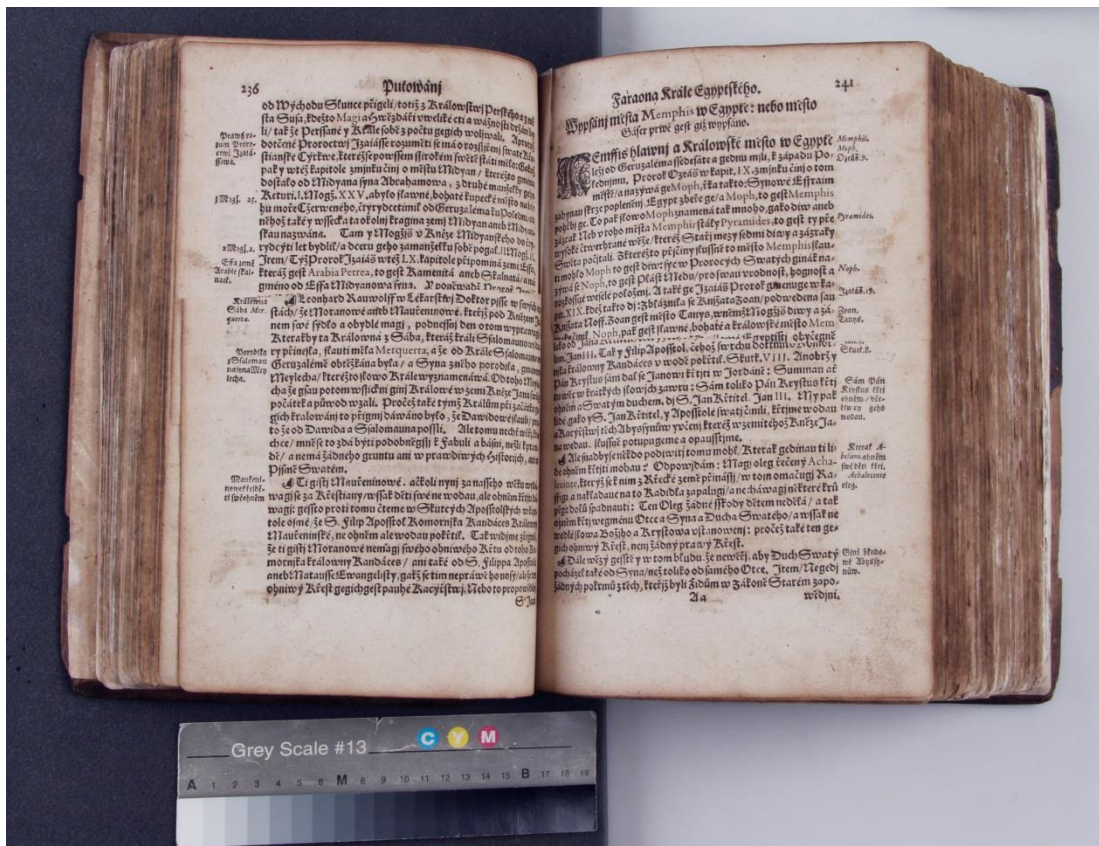 236
Putowánj
od Wýchodu Slunce přigeli/ totiž z Králowstwj Perského a z mě
sta Susa, kdežto Magi a Hwězdáři w weliké cti a wážnosti držáni by
li/ tak že Perssané y Krále sobě z počtu gegich wolijwali. A protož
dotčené Proroctwj Izaiásse rozuměti se má o rozssjřenj swaté Křes
stianské Cyrkwe, kteréž se po wssem ssirokém swětě státi mělo: Gakož
pak y w též kapitole zmjnku činj o městu Midyan/ kteréžto gméno
dostalo od Midyana syna Abrahamowa, z druhé manželky geho
Keturi, I. Mogž. XXV, a bylo slawné, bohaté kupecké město na bře
hu moře Czerweného, čtyrydcetimil od Geruzaléma ku Poledni, od
něhož také y wssecka ta okolnj kragina zemj Midyan aneb Midyan
skau nazwána. Tam y Mogžjss v Kněze Midyanského do čty
rydcyti let bydlil/ a dceru geho za manželku sobě pogal. II. Mogž. II.
Item/ Týž Prorok Izaiáš w též LX. kapitole připomjná zemi Effa,
kteráž gest Arabia Petrea, to gest Kamenitá aneb Skalnatá/ a má
gméno od Effa Midyanowa syna. Y poněwadž Prorok
Leonhard Rauwolff w Lékařstwj Doktor pjsse w swých
stách/ že Moranowé aneb Mauřenjnowé. kteřjž pod Knězem Ja
nem swé sydlo a obydlé magj, podnessnj den o tom wyprawugj
Kterak by ta Králowna z Sába, kteráž králi Ssalomaunowi da
ry přinesla, slauti měla Merquetta, a že od Krále Ssalomauna
Geruzalémě obtěžkána byla/ a Syna z něho porodila, gménem
Meylecha/ kteréžto slowo Krále wyznamenáwá. Od toho Meyle
cha že gsau potom wssickni ginj Králowé w zemi Kněze Jana swůg
počátek a půwod wzali. Pročež také týmž Králům při začátku ge
gich kralowánj to přigmj dáwáno bylo, že Dawidowé slauli/ pro
to že od Dawida a Ssalomauna possli. Ale tomu nechť wěřj kdo
chce/ mně se to zdá býti podobněgssj k Fabuli a básni, nežli k praw
dě/ a nemá žádného gruntu ani w prawdiwých Historych, ani w
Pjsmě Swatém.
Ti gistj Mauřenjnowé. ačkoli nynj za nassého wěku wydá
wagj se za Křestiany/ wssak děti swé ne wodau, ale ohněm křti dá
wagj: gessto proti tomu čteme w Skutcých Apossstolských w kapi
tole osmé/ že S. Filip Aposstol Komornjka Kandáces Králowny
Mauřeninské, ne ohněm ale wodau pokřtil. Tak widjme zřegmě
že ti gistj Moranowé nemagj swého ohniwého Křtu od toho Ko
mornjka králowny Kandáces/ ani také od S. Filippa Aposstola
aneb Matausse Ewangelisty, gakž se tjm nepráwě honosý/ ale že ten
ohniwý Křest gegich gest pauhé Kacyřstwj. Nebo to propowědj
S. Jan
Prawý ro-
zum Proro-
ctwj Izaiá-
ssowa.
1 Mogž. 25.
2 Mogž. 2.
Effa země
Arabie skal-
natá.
Králowna
Sába Mer-
quetta.
Porodila
z Ssalomau
na syna Mey
lecha.
Mauřenj-
nowé křtj dě-
ti swé ohněm
241
Faraona Krále Egyptského.
Wypsánj města Memphis w Egyptě: nebo město
Gáser prwé gest giž wypsáno.
MEmffis hlawnj a Králowské město w Egyptě
ležj od Geruzaléma ssedesáte a gednu mjli, k západu Po
lednjmu. Prorok Ozeáš w kapit. IX. zmjnku činj o tom
městě/ a nazýwá ge Moph, řka takto: Synowé Effraim
zahynau skrze popleněnj, Egypt zbéře ge/ a Moph, to gest Memphis
pohřbj ge. To pak slowo Moph znamená tak mnoho, gako diw aneb
zázrak Neb v toho města Memphis stály Pyramides, to gest ty pře
wysoké čtwerhrané wěže/ kteréž Stařj mezy sedmi diwy a zázraky
Swěta počtali. Z kteréžto přjčiny slussně to město Memphis slau
ti mohlo Moph to gest diw: syc w Prorocých Swatých gináč na-
zýwá se Noph, to gest Plást Medu/ pro swau vrodnost, hognost a
rozkossné weselé položenj. A také ge Izaiáš Prorok gmenuge w ka-
pit. XIX. kdež takto dj: Zbláznila se Knjžata Zoan/ podwedena sau
Knjžata Noff. Zoan gest město Tanys, w němž Mogžjš diwy a zá-
zraky činil. Noph, pak gest slawné, bohaté a králowské město Mem
lo od Jana
lem. Jan III. Tak y Filip Aposstol. čehož swrchu dotknuto
njka králowny Kandaces w wodě pokřtil. Skutk. VIII. Anobrž y
Pán Krystus sám dal se Janowi křtiti w Jordáně: Summau ač
w krátkých slowjch zawru: Sám toliko Pán Krystus křtj
ohněm a Swatým duchem, dj S. Jan Křtitel. Jan III. My pak
lidé. gako y S. Jan Křtitel, y Aposstolé swatj činili, křtjme wodau
a Kacyřstwj těch Abyssynůw y včenj kteréž w zemi téhož Kněze Ja-
na wedau. slussně potupugeme a opausstjme.
Ale snad by se někdo podiwiti tomu mohl/ Kterak gedinau ti li
dé ohněm křtiti mohau? Odpowjdám: Magj oleg řečený Acha-
lencte, kterýž se k nim z Řecké země přinássj/ w tom omačugj Ra-
ssigi a nakladauce na to Kadidka zapalugj/ a nechawagj některé krů
pěge dolů spadnauti: Ten Oleg žádné sskody dětem nedělá/ a tak
ohněm křtj we gménu Otce a Syna a Ducha Swatého/ a wssak ne
wedlé slowa Božjho a Krystowa vstanowenj: pročež také ten ge-
gich ohniwý Křest, nenj žádný prawý Křest.
Dále wězý gesstě y w tom bludu. že newěřj, aby Duch Swatý
pocházel také od Syna/ než toliko od samého Otce. Item/ Negedj
žádných pokrmů z těch, kteřjž byli Židům w Zákoně Starém zapo-
Aa
wědjni.
Memphis.
Moph.
Ozeáš. 9.
Pyramides.
Noph.
Izaiáš. 19.
Zoan.
Tanys.
Skutk. 8.
Sám Pán
Krystus křtj
ohněm/ wče-
dln cy geho
wodau.
Kterak A-
byssyni. ohněm
swé děti křtj.
Achalencte
oleg.
Ginj bludo-
wé Abyssy-
nůw.
Grey Scale #13
C Y M
A 1 2 3 4 5 6 M 8 9 10 11 12 13 14 15 B 17 18 19